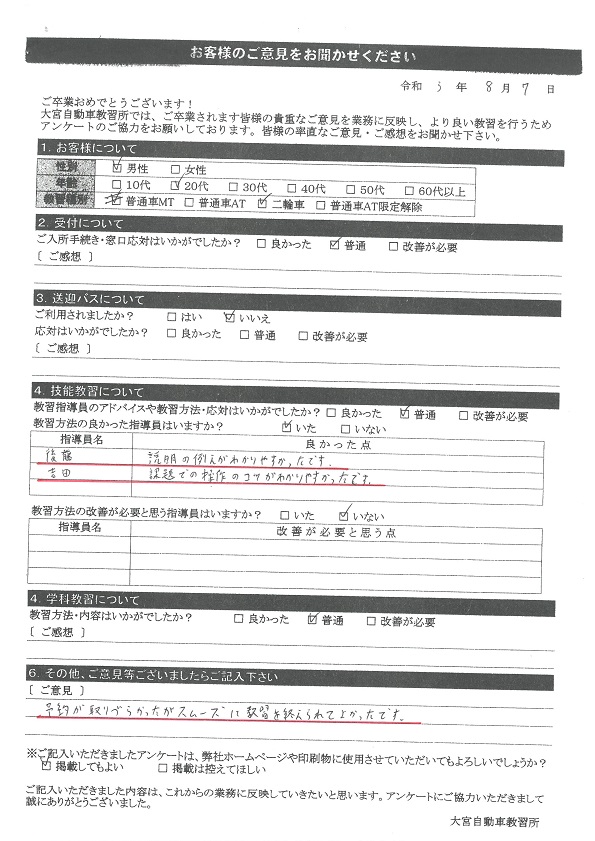 お客様のご意見をお聞かせください
令和 3 年 8 月 7 日
ご卒業おめでとうございます！
大宮自動車教習所では、ご卒業されます皆様の貴重なご意見を業務に反映し、より良い教習を行うため
アンケートのご協力をお願いしております。皆様の率直なご意見・ご感想をお聞かせ下さい。
1. お客様について
性別 ☑男性 □女性
年齢 □10代 ☑20代 □30代 □40代 □50代 □60代以上
教習種別 ☑普通車MT □普通車AT ☑二輪車 □普通車AT限定解除
2. 受付について
ご入所手続き・窓口応対はいかがでしたか？ □良かった ☑普通 □改善が必要
〔 ご感想 〕
3. 送迎バスについて
ご利用されましたか？ □はい ☑いいえ
応対はいかがでしたか？ □良かった □普通 □改善が必要
〔 ご感想 〕
4. 技能教習について
教習指導員のアドバイスや教習方法・応対はいかがでしたか？ □良かった ☑普通 □改善が必要
教習方法の良かった指導員はいますか？ ☑いた □いない
指導員名 良かった点
後藤 説明の例えがわかりやすかったです。
吉田 課題での操作のコツがわかりやすかったです。
教習方法の改善が必要と思う指導員はいますか？ □いた ☑いない
指導員名 改善が必要と思う点
4. 学科教習について
教習方法・内容はいかがでしたか？ □良かった ☑普通 □改善が必要
〔 ご感想 〕
6. その他、ご意見等ございましたらご記入下さい
〔 ご意見 〕
予約が取りづらかったがスムーズに教習を終えられてよかったです。
※ご記入いただきましたアンケートは、弊社ホームページや印刷物に使用させていただいてもよろしいでしょうか？
☑掲載してもよい □掲載は控えてほしい
ご記入いただきました内容は、これからの業務に反映していきたいと思います。アンケートにご協力いただきまして
誠にありがとうございました。
大宮自動車教習所